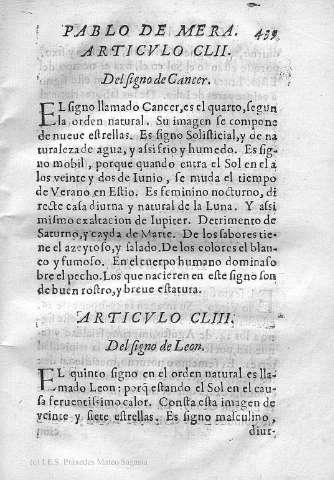 PABLO DE MERA. 439
ARTICVLO CLII.
Del signo de Cancer.
EL signo llamado Cancer, es el quarto, segun
la orden natural. Su imagen se compone
de nueue estrellas. Es signo Solisticial, y de na
turaleza de agua, y assi frio y humedo. Es sig-
no mobil, porque quando entra el Sol en el a
los veinte y dos de Iunio, se muda el tiempo
de Verano, en Estio. Es feminino nocturno, di
recte casa diurna y natural de la Luna. Y assi
mismo exaltacion de Iupiter. Detrimento de
Saturno, y cayda de Marte. De los sabores tie-
ne el azeytoso, y salado. De los colores el blan-
co y fumoso. En el cuerpo humano domina so
bre el pecho. Los que nacieren en este signo son
de buen rostro, y breue estatura.
ARTICVLO CLIII.
Del signo de Leon.
EL quinto signo en el orden natural es lla-
mado Leon: porq̃ estando el Sol en el cau-
sa feruentissimo calor. Consta esta imagen de
veinte y siete estrellas. Es signo masculino,
diur-
(c) I.E.S. Práxedes Mateo Sagasta